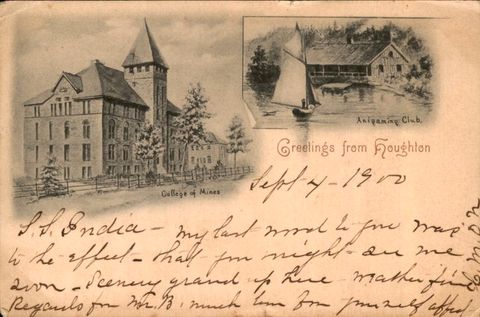 College of Mines
Anigaming Club.
Greetings from Houghton
Sept 4 - 1900
S.S. India - my last word to you was
to the effect - that you might see me
soon - Scenery grand up here - weather fine
Regards for Mr. B; much love for yourself